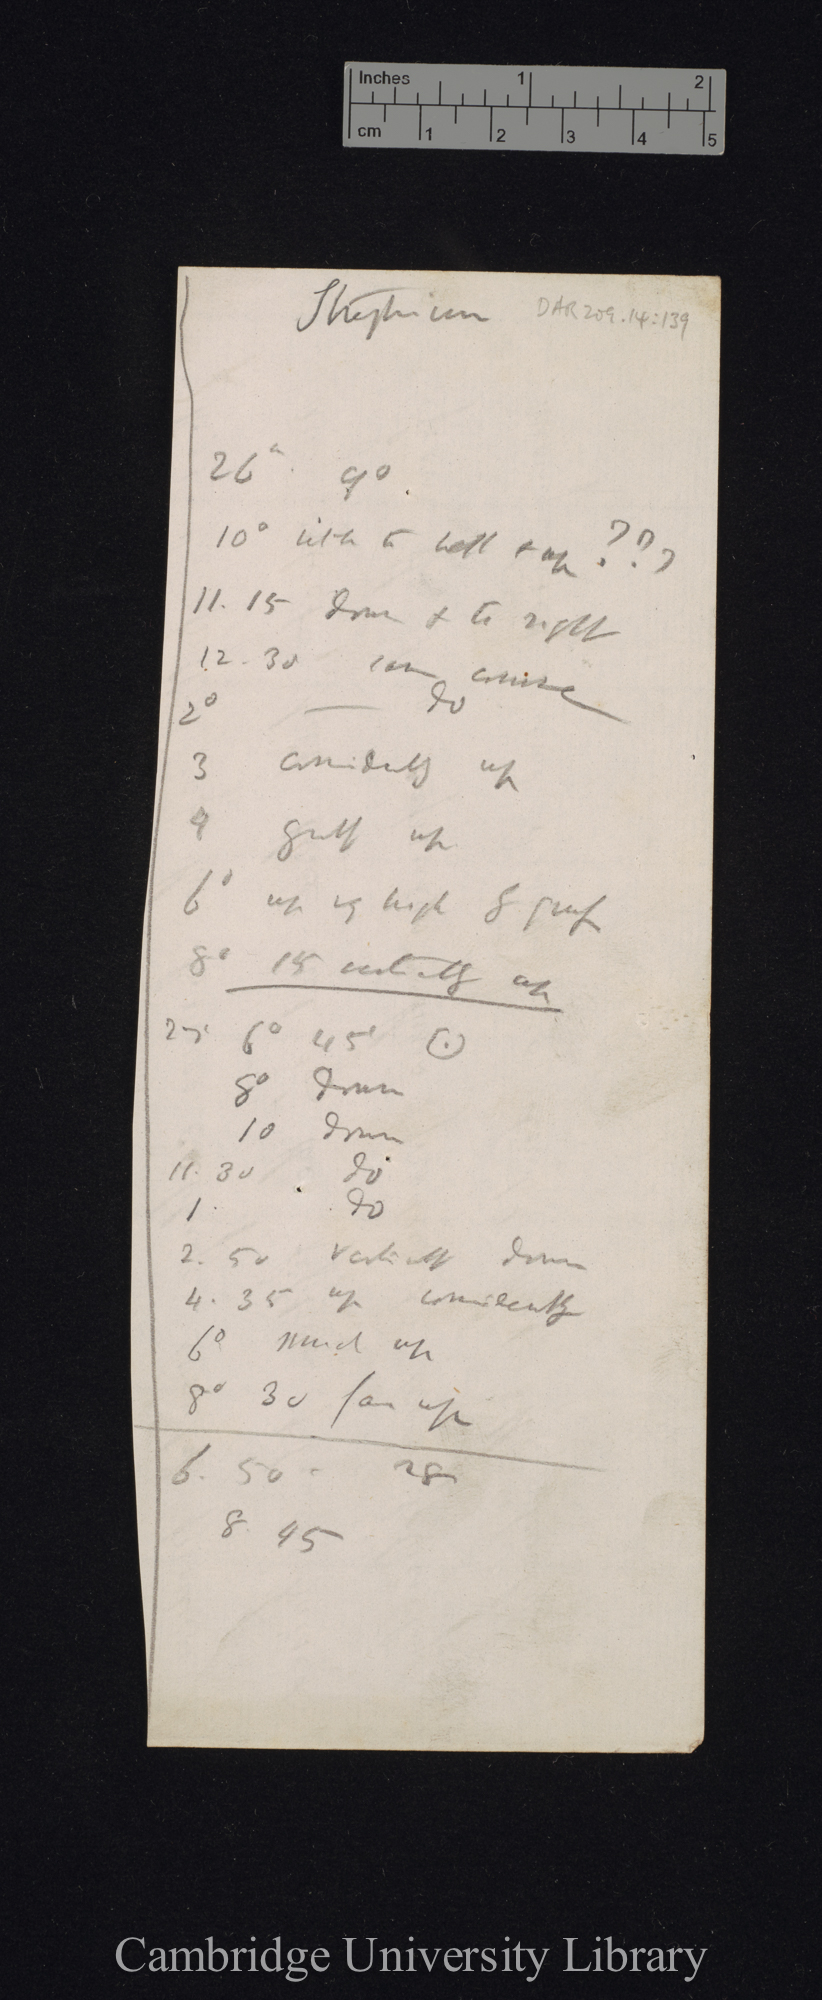 Inches 1 2
cm 1 2 3 4 5
DAR 209.14:139
26 9°
10° to & up ???
11. 15 down & to right
12. 30 course
2° — do
3 up
4 up
6° up high
8° 15 vertically up
6° 45'
8° down
10 down
11. 30 do
1. do
2. 50 vertically down
4. 35 up considerably
6° much up
8° 30 far up
6. 50 28
8. 45
Cambridge University Library